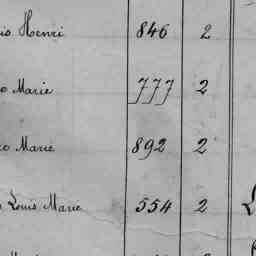 Henri 846 2
Marie 777 2
Marie 892 2
Louis Marie 554 2